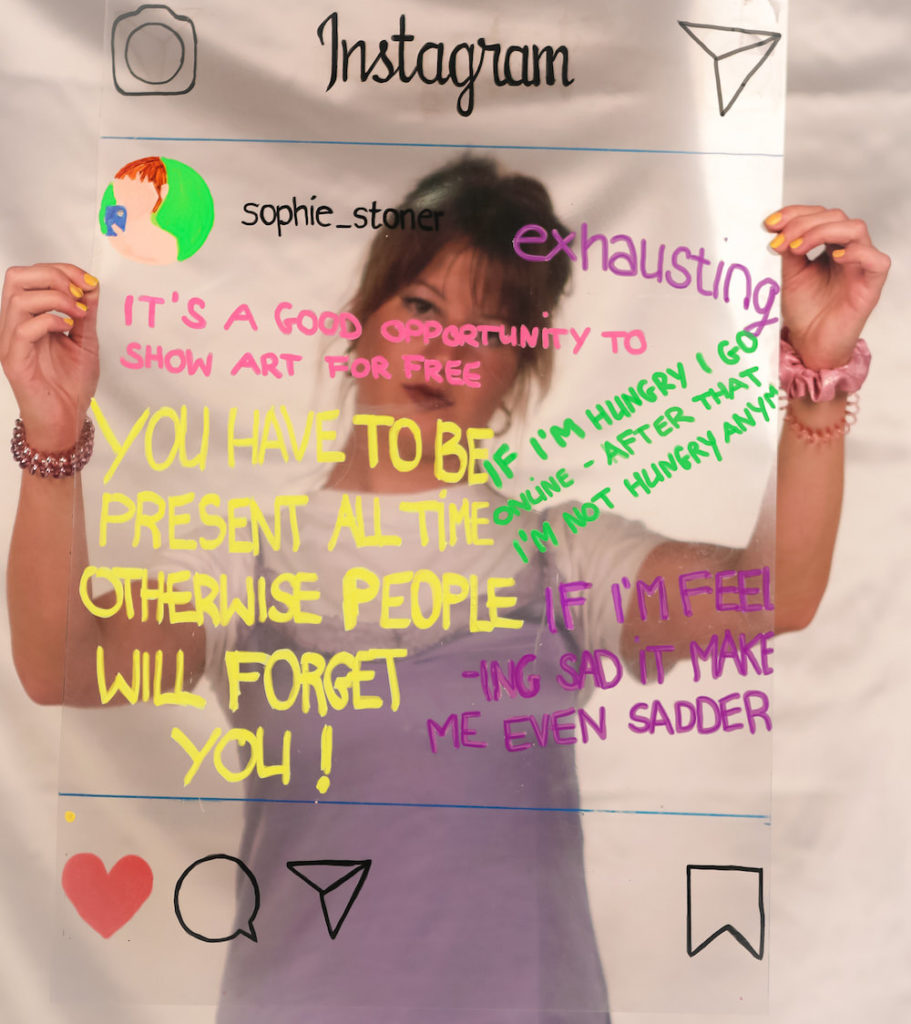 Instagram
sophie_stoner
exhausting
IT'S A GOOD OPPORTUNITY TO
SHOW ART FOR FREE
IF I'M HUNGRY I GO
ONLINE - AFTER THAT
I'M NOT HUNGRY ANYM
YOU HAVE TO BE
PRESENT ALL TIME
OTHERWISE PEOPLE
WILL FORGET
YOU !
IF I'M FEEL
-ING SAD IT MAKE
ME EVEN SADDER